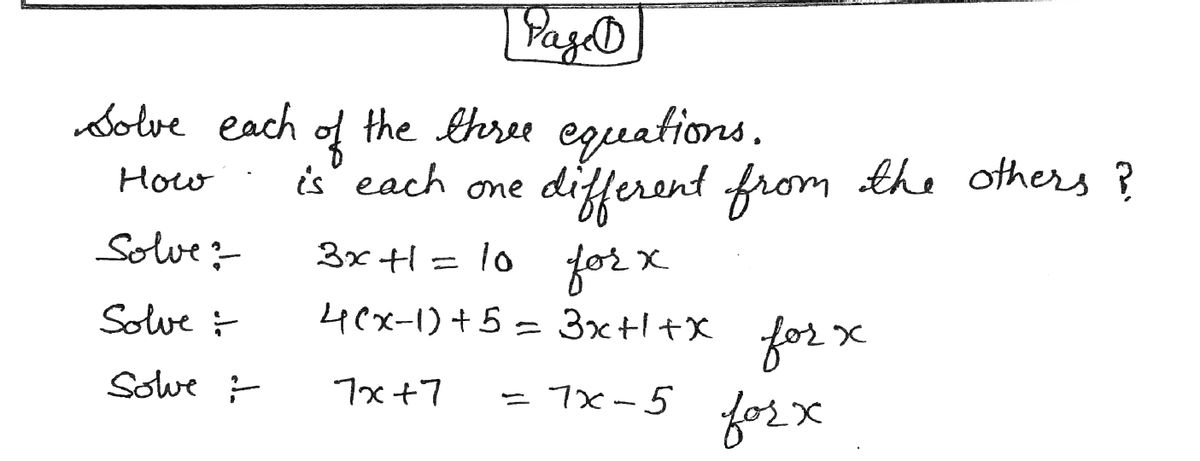 Page①
Solve each of the three equations.
How is each one different from the others ?
Solve :- 3x+1 = 10 for x
Solve :- 4(x-1)+5 = 3x+1+x for x
Solve :- 7x+7 = 7x-5 for x